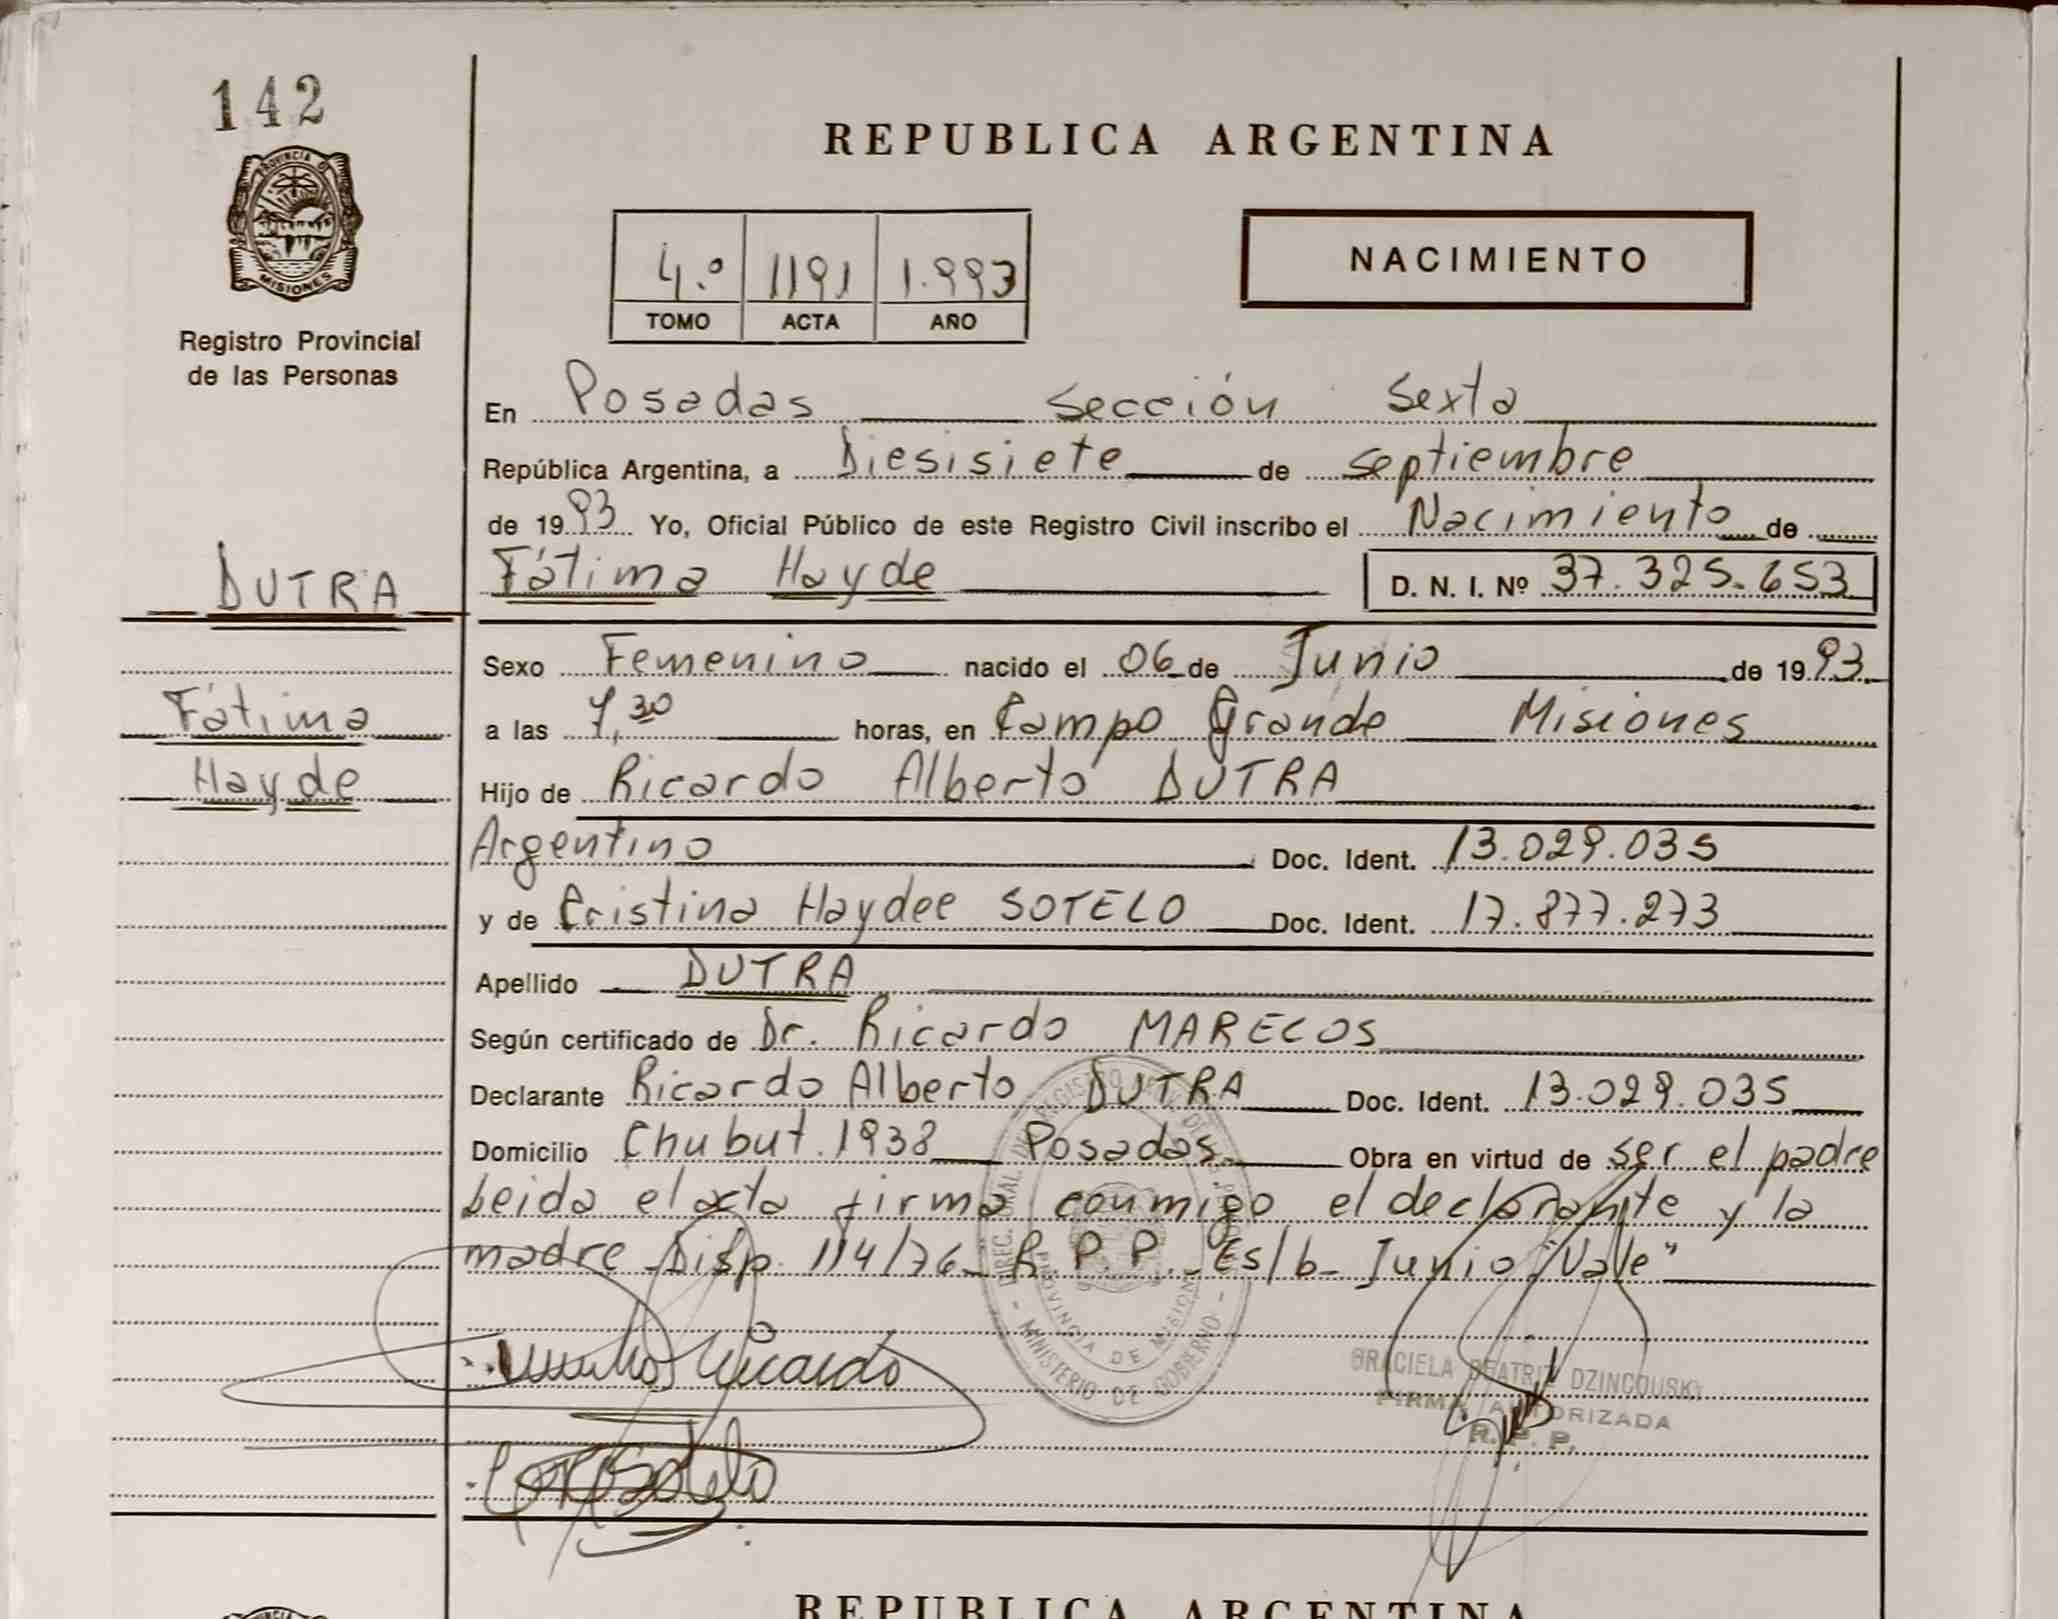 142
PROVINCIA DE
MISIONES
Registro Provincial
de las Personas
REPUBLICA ARGENTINA
4.º 1191 1.993
TOMO ACTA AÑO
NACIMIENTO
En Posadas Sección Sexta
República Argentina, a Diesisiete de septiembre
de 1993 Yo, Oficial Público de este Registro Civil inscribo el Nacimiento de
DUTRA
Fátima Hayde D. N. I. Nº 37.325.653
Sexo Femenino nacido el 06 de Junio de 1993
Fátima
a las 7,30 horas, en Campo Grande Misiones
Hayde
Hijo de Ricardo Alberto DUTRA
Argentino Doc. Ident. 13.029.035
y de Cristina Haydee SOTELO Doc. Ident. 17.877.273
Apellido DUTRA
Según certificado de Dr. Ricardo MARECOS
Declarante Ricardo Alberto DUTRA Doc. Ident. 13.029.035
Domicilio Chubut 1938 Posadas Obra en virtud de ser el padre
Leida el acta firma conmigo el declarante y la
madre Disp. 114/76 R.P.P. Es/b- Junio "Vale"
PROVINCIA DE MISIONES
MINISTERIO DE GOBIERNO
Ricardo
GRACIELA BEATRIZ DZINCOUSKI
FIRMA AUTORIZADA
R. P. P.
Sotelo
REPUBLICA ARGENTINA